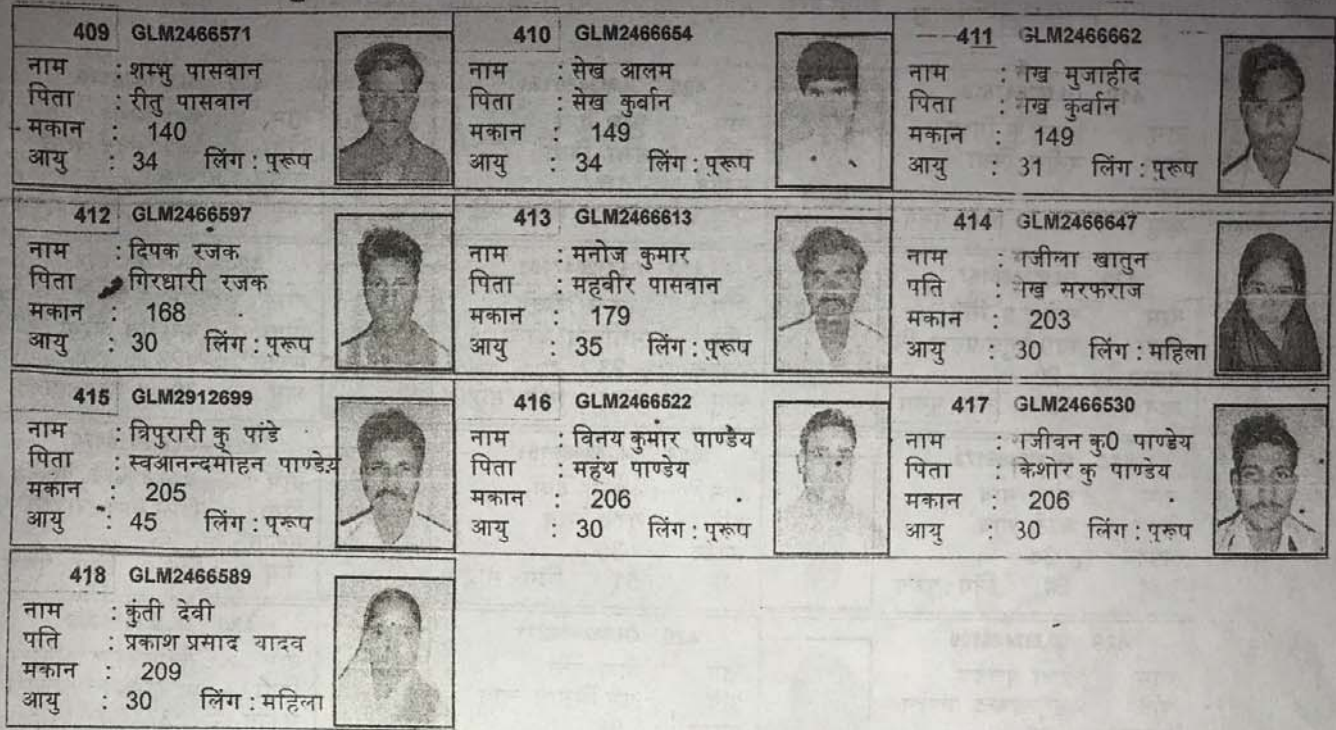 409 GLM2466571
नाम : शम्भु पासवान
पिता : रीतु पासवान
मकान : 140
आयु : 34 लिंग : पुरूष
410 GLM2466654
नाम : सेख आलम
पिता : सेख कुर्वान
मकान : 149
आयु : 34 लिंग : पुरूष
411 GLM2466662
नाम : मुजाहीद
पिता : कुर्वान
मकान : 149
आयु : 31 लिंग : पुरूष
412 GLM2466597
नाम : दिपक रजक
पिता गिरधारी रजक
मकान : 168
आयु : 30 लिंग : पुरूष
413 GLM2466613
नाम : मनोज कुमार
पिता : महवीर पासवान
मकान : 179
आयु : 35 लिंग : पुरूष
414 GLM2466647
नाम : खातुन
पति : सरफराज
मकान : 203
आयु : 30 लिंग : महिला
415 GLM2912699
नाम : त्रिपुरारी कु पांडे
पिता : स्वआनन्दमोहन पाण्डेय
मकान : 205
आयु : 45 लिंग : पुरूष
416 GLM2466522
नाम : विनय कुमार पाण्डेय
पिता : महंथ पाण्डेय
मकान : 206
आयु : 30 लिंग : पुरूष
417 GLM2466530
नाम : कु0 पाण्डेय
पिता : किशोर कु पाण्डेय
मकान : 206
आयु : 30 लिंग : पुरूष
418 GLM2466589
नाम : कुंती देवी
पति : प्रकाश प्रसाद यादव
मकान : 209
आयु : 30 लिंग : महिला